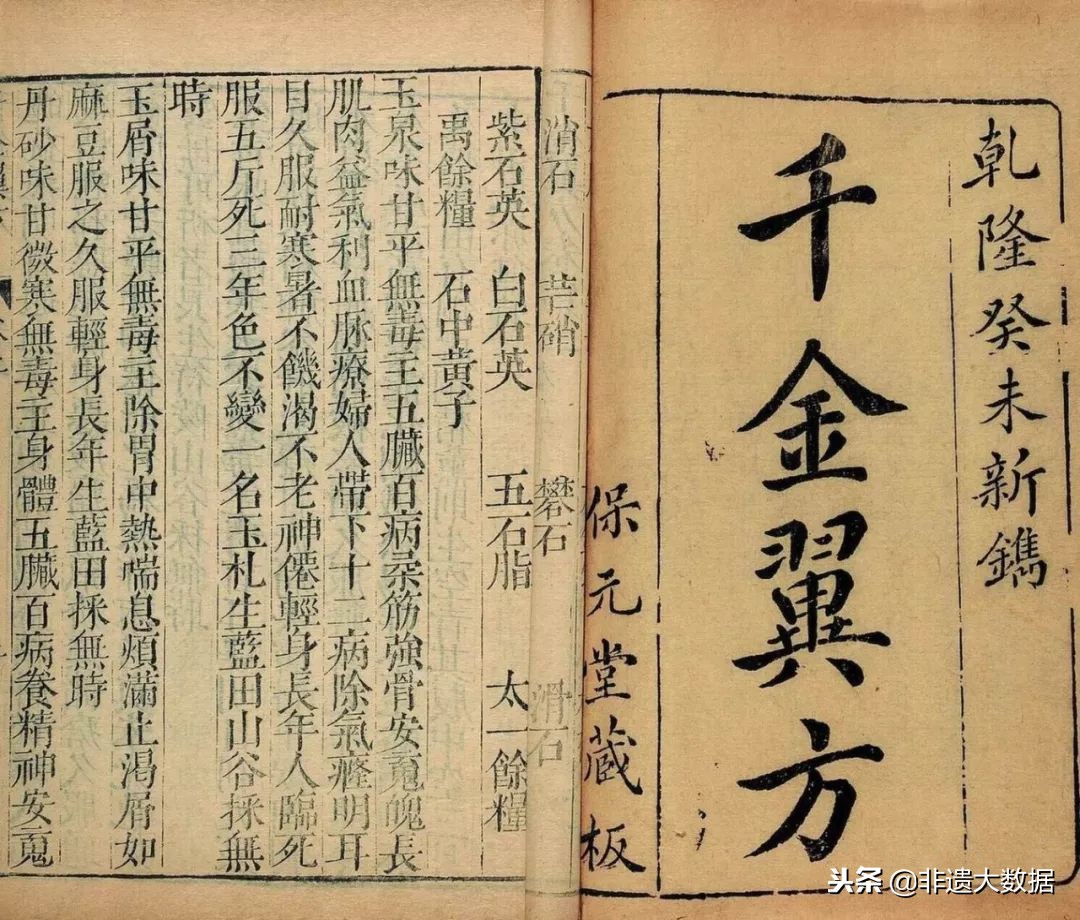 乾隆癸未新鐫
千金翼方
保元堂蔵板
消石 芒硝 礬石 滑石
紫石英 白石英 五石脂 太一餘糧
禹餘糧 石中黃子
玉泉味甘平無毒主五臟百病柔筋強骨安䰟魄長
肌肉益氣利血脉療婦人帶下十二病除氣癃明耳
目久服耐寒暑不饑渴不老神僊輕身長年人臨死
服五斤死三年色不變一名玉札生藍田山谷採無
時
玉屑味甘平無毒主除胃中熱喘息煩滿止渴屑如
麻豆服之久服輕身長年生藍田採無時
丹砂味甘微寒無毒主身體五臟百病養精神安䰟
头条 @非遗大数据